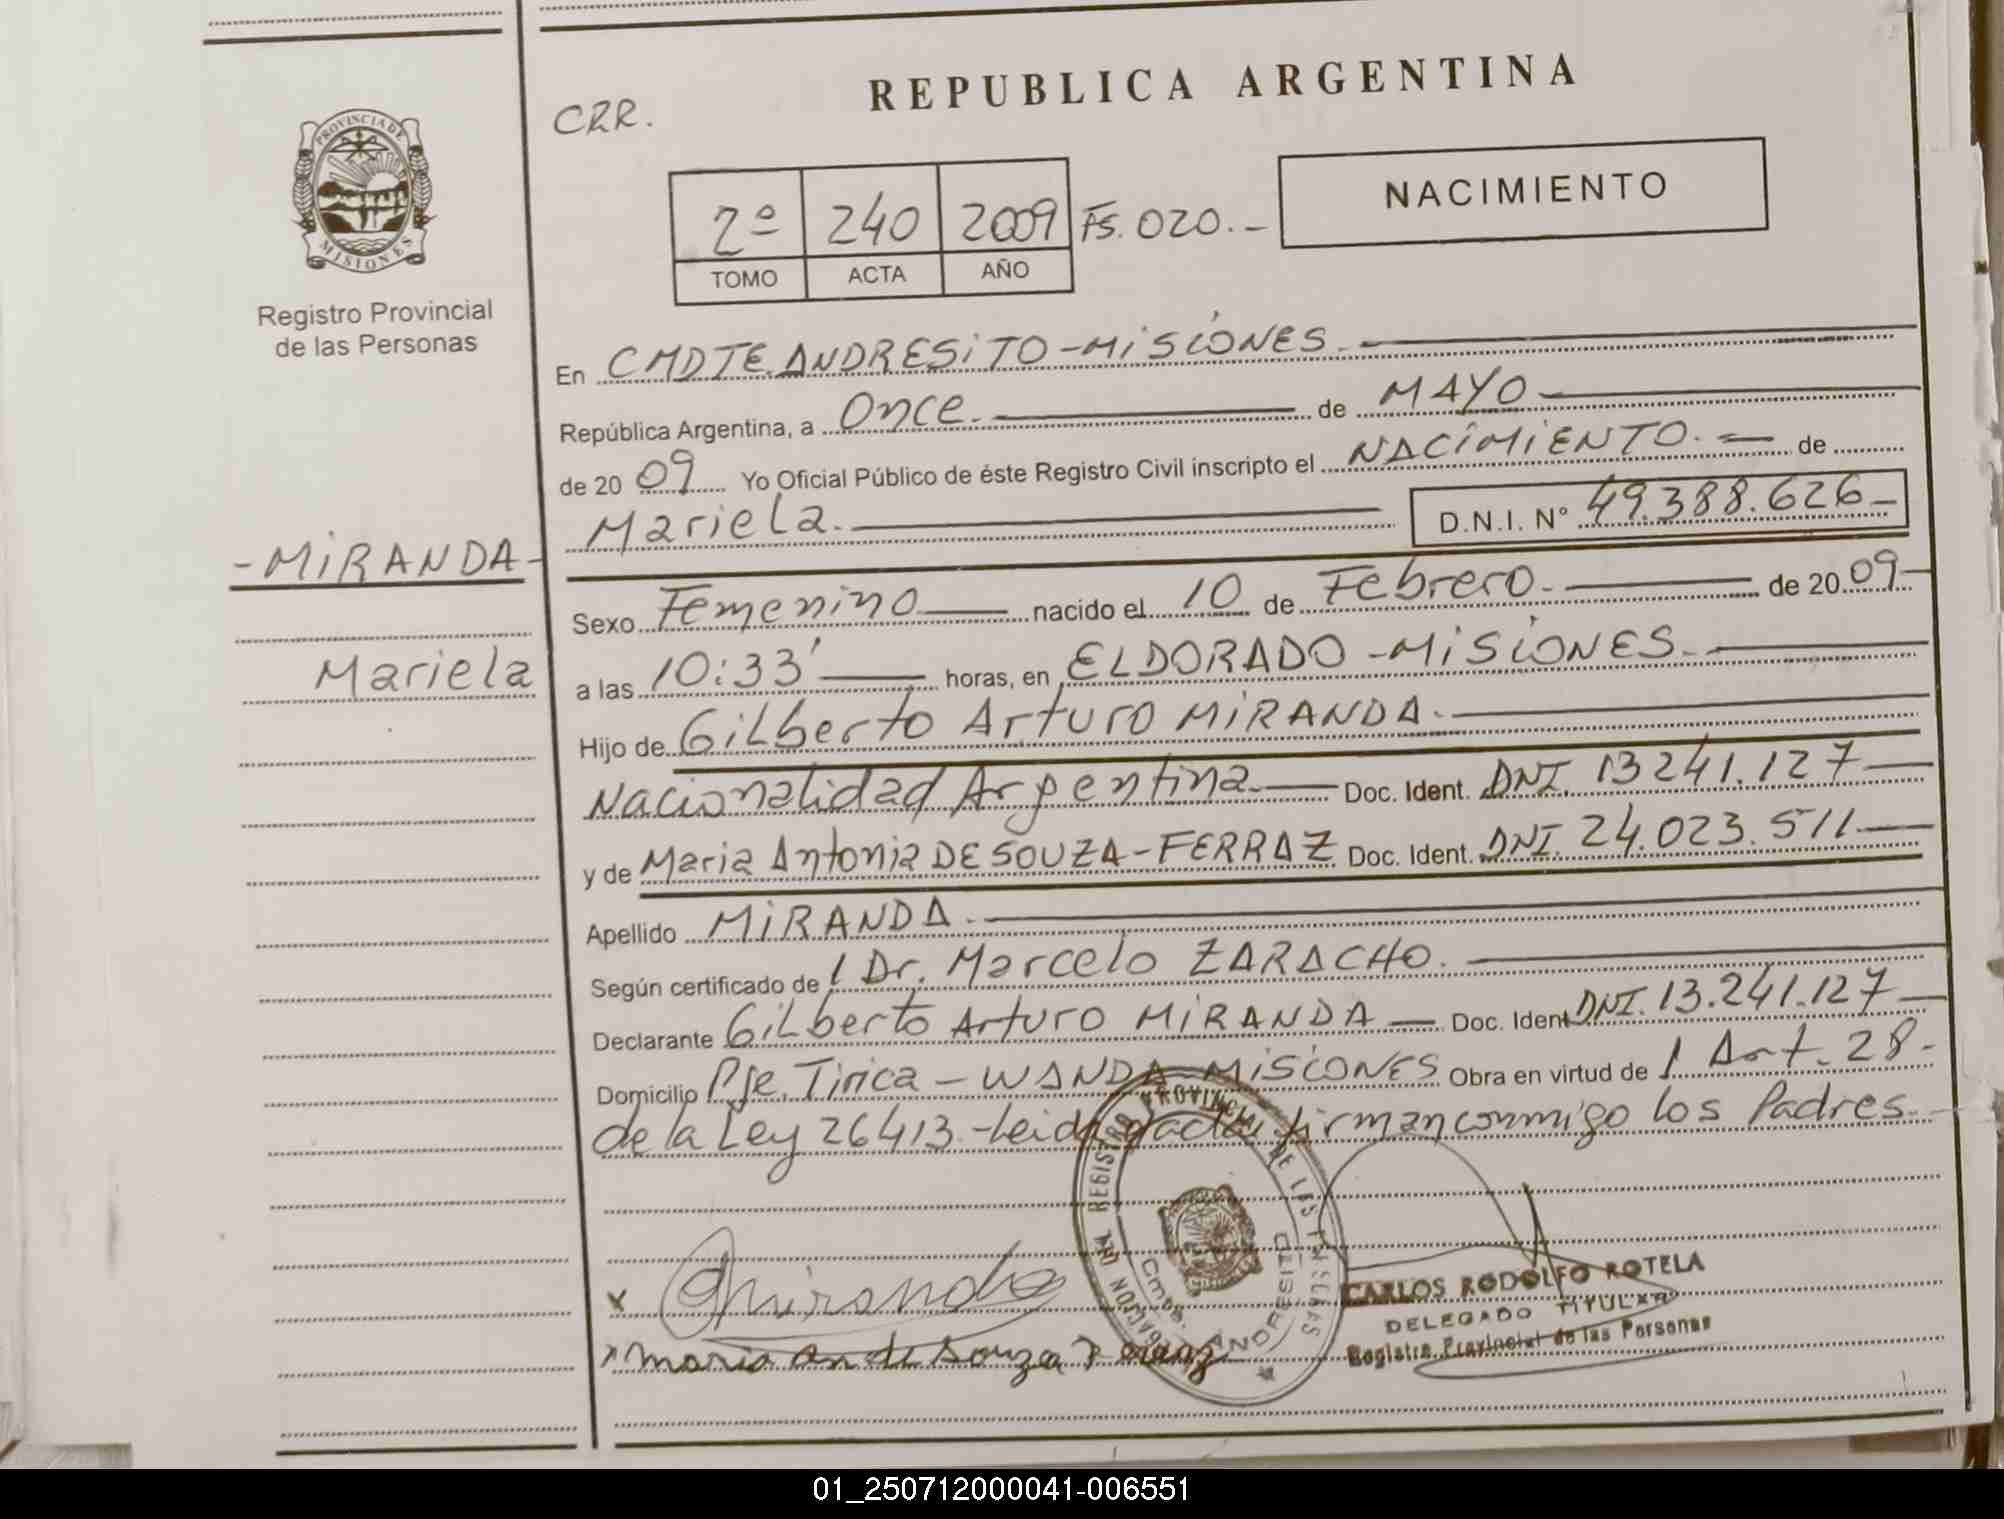 REPUBLICA ARGENTINA
CRR.
PROVINCIA DE
MISIONES
Registro Provincial
de las Personas
2º 240 2009 FS. 020.-
TOMO ACTA AÑO
NACIMIENTO
En CMDTE. ANDRESITO - MISIONES.
República Argentina, a Once. de MAYO
de 20 09 Yo Oficial Público de éste Registro Civil inscripto el NACIMIENTO. = de
Mariela. D.N.I. Nº 49.388.626-
- MIRANDA -
Mariela
Sexo Femenino nacido el 10 de Febrero. de 20 09
a las 10:33' horas, en ELDORADO - MISIONES.
Hijo de Gilberto Arturo MIRANDA.
Nacionalidad Argentina. Doc. Ident. DNI. 13241.127
y de Maria Antonia DE SOUZA - FERRAZ Doc. Ident. DNI. 24.023.511
Apellido MIRANDA.
Según certificado de l Dr. Marcelo ZARACHO.
Declarante Gilberto Arturo MIRANDA Doc. Ident DNI. 13.241.127
Domicilio Pje. Tirica - WANDA - MISIONES Obra en virtud de l Art. 28 -
de la Ley 26413.- Leida acta, firman conmigo los Padres.
DELEGACION DEL REGISTRO PROVINCIAL DE LAS PERSONAS
Cmde. ANDRESITO
x Miranda
x maria an de Souza Feraz
CARLOS RODOLFO ROTELA
DELEGADO TITULAR
Registro Provincial de las Personas
01_250712000041-006551